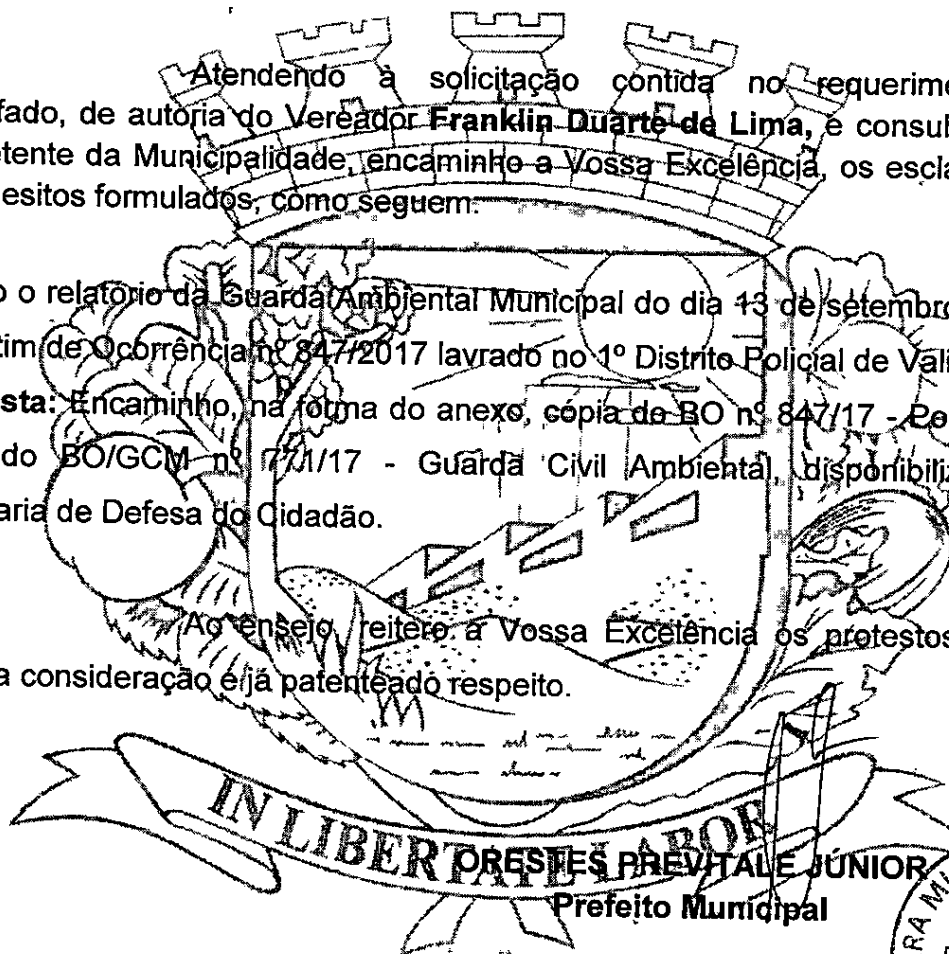 Atendendo à solicitação contida no requerime
fado, de autoria do Vereador Franklin Duarte de Lima, e consul
etente da Municipalidade, encaminho a Vossa Excelência, os escla
esitos formulados, como seguem:
o o relatório da Guarda Ambiental Municipal do dia 13 de setembro
tim de Ocorrência nº 847/2017 lavrado no 1º Distrito Policial de Vali
sta: Encaminho, na forma do anexo, cópia de BO nº 847/17 - Po
do BO/GCM nº 771/17 - Guarda Civil Ambiental, disponibiliz
aria de Defesa do Cidadão.
Ao ensejo, reitero a Vossa Excelência os protestos
a consideração e já patenteado respeito.
IN LIBERTATE LABOR
ORESTES PREVITALE JÚNIOR
Prefeito Municipal
RA MU